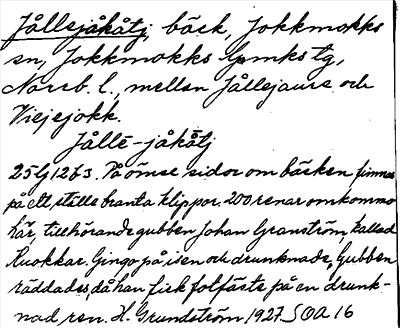 Jållejåkåtj, bäck, Jokkmokks
sn, Jokkmokks lpmkstg,
Norrb. l., mellan Jållejaure och
Viejejokk.
Jållē-jåkåtj
25G12b3. På ömse sidor om bäcken finnas
på ett ställe branta klippor. 200 renar omkommo
här, tillhörande gubben Johan Granström, kallad
Kuokkar. Gingo på isen och drunknade. Gubben
räddades då han fick fotfäste på en drunk-
nad ren. H. Grundström 1927 SOA 16